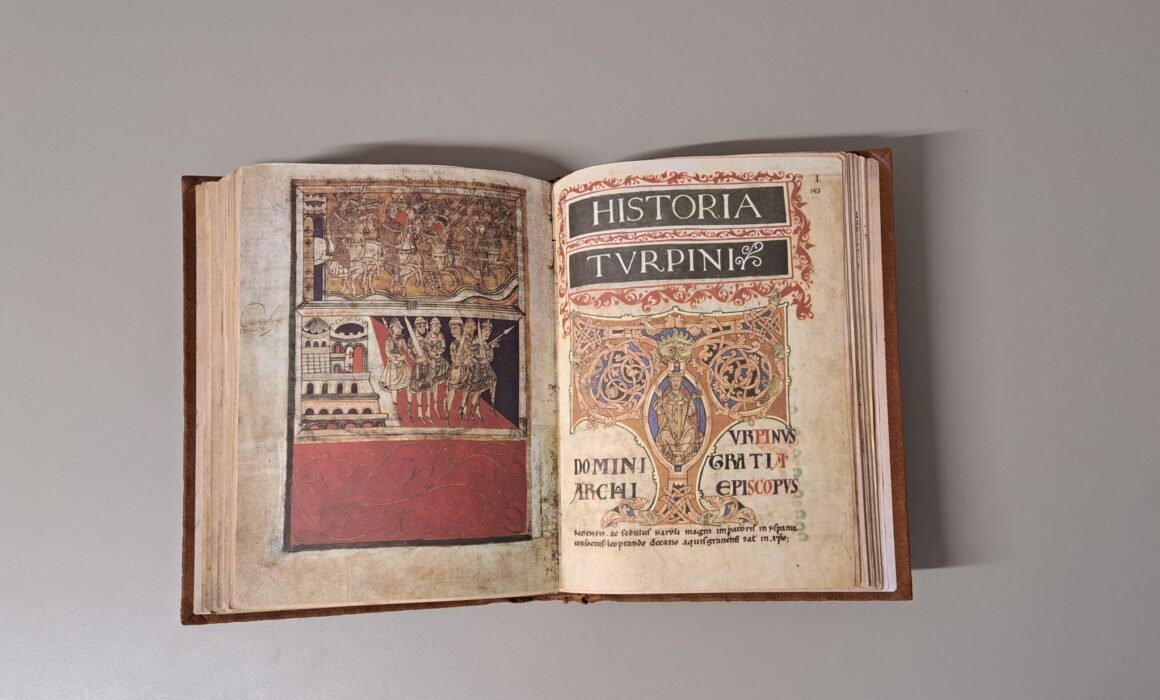 I
163
HISTORIA
TVRPINI
VRPINVS
DOMINI GRATIA
ARCHI EPISCOPVS
Remensis. ac sedulus Karoli magni imperatoris in Yspania
consocius. leoprando decano aquisgranensi sal̄ in xp̄o;